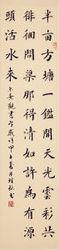 半畝方塘一鑑開天光雲影共
徘徊問渠那得清如許為有源
頭活水來